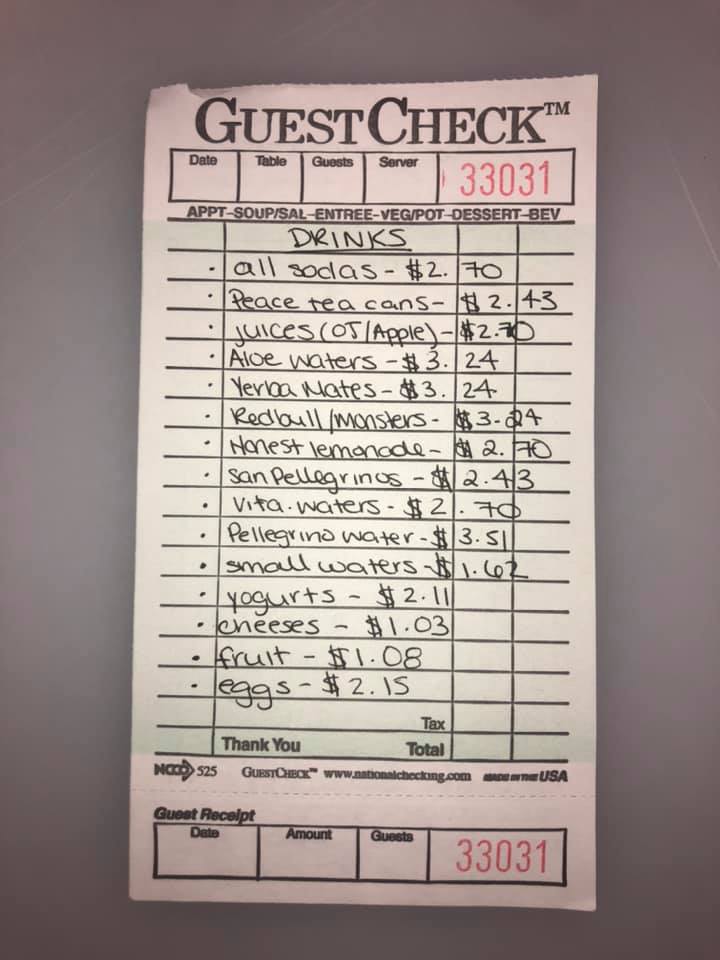 GUESTCHECK™
Date Table Guests Server 33031
APPT-SOUP/SAL-ENTREE-VEG/POT-DESSERT-BEV
DRINKS
· all sodas - $2.70
· Peace tea cans - $2.43
· juices (OJ/Apple) - $2.70
· Aloe waters - $3.24
· Yerba Mates - $3.24
· Redbull/Monsters - $3.24
· Honest lemonade - $2.70
· san Pellegrinos - $2.43
· vita.waters - $2.70
· Pellegrino water - $3.51
· small waters - $1.62
· yogurts - $2.11
· cheeses - $1.03
· fruit - $1.08
· eggs - $2.15
Tax
Thank You Total
NCCO 525 GUESTCHECK™ www.nationalchecking.com MADE IN THE USA
Guest Receipt
Date Amount Guests 33031